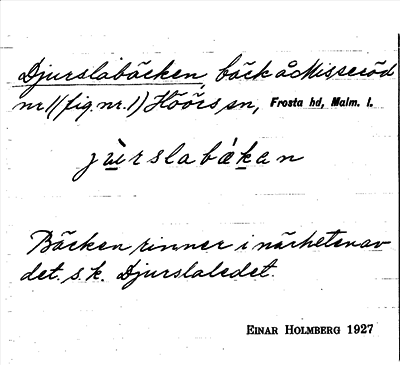 Djurslabäcken, bäck å Misseröd
nr 1 (fig. nr. 1) Höörs sn, Frosta hd, Malm. l.
jùrslabákan
Bäcken rinner i närheten av
det s.k. Djurslaledet.
EINAR HOLMBERG 1927